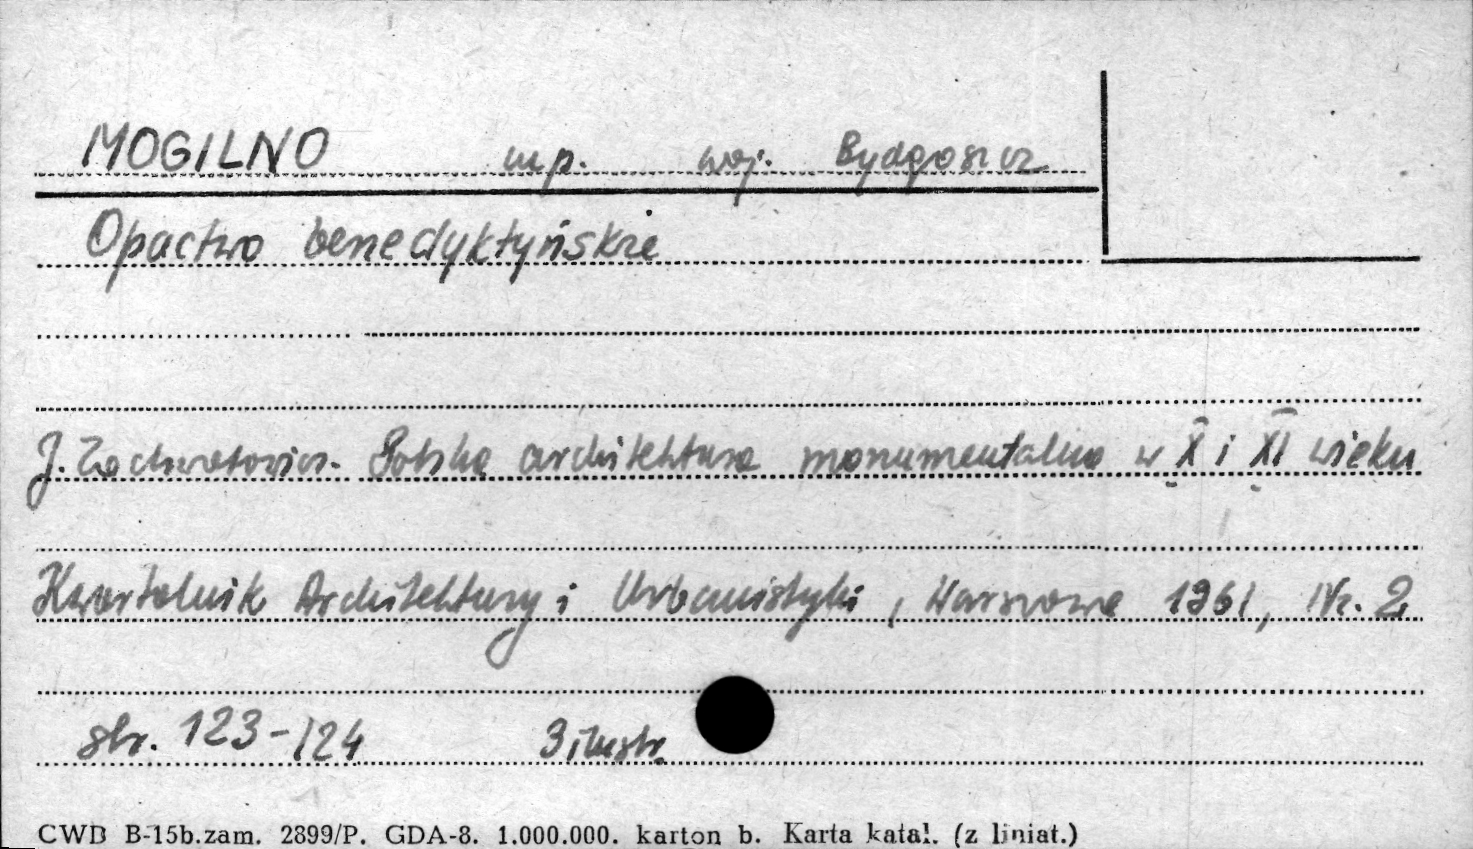 MOGILNO mp. woj. Bydgoszcz
Opactwo benedyktyńskie
J. Zachwatowicz. Polska architektura monumentalna w X i XI wieku
Kwartalnik Architektury i Urbanistyki, Warszawa 1961, Nr. 2
str. 123-124 3 ilustr.
CWD B-15b.zam. 2899/P. GDA-8. 1.000.000. karton b. Karta katal. (z liniat.)